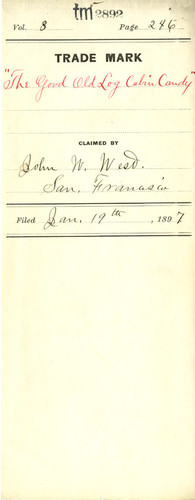 tm 2892
Vol. 8 Page 246
TRADE MARK
"The Good Old Log Cabin Candy"
CLAIMED BY
John W. West.
San Francisco
Filed Jan. 19th, 1897